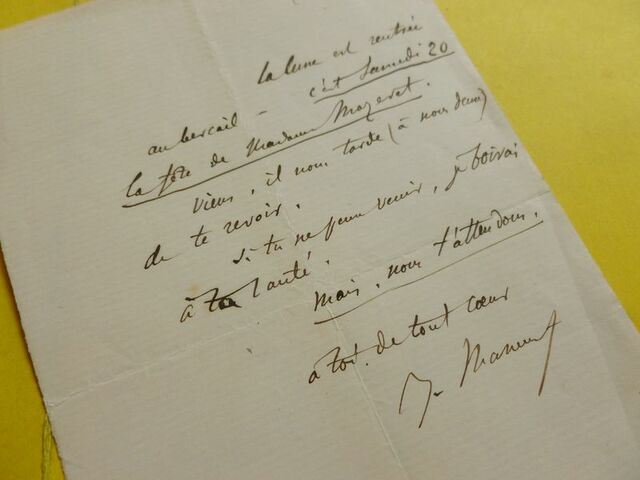 la lune est rentrée
au bercail – c'est Samedi 20
la fête de Madame Mozeret.
Viens, il nous tarde (à nous deux)
de te revoir.
Si tu ne peux venir, je boirai
à ta santé.
Mais, nous t'attendons.
à toi de tout cœur